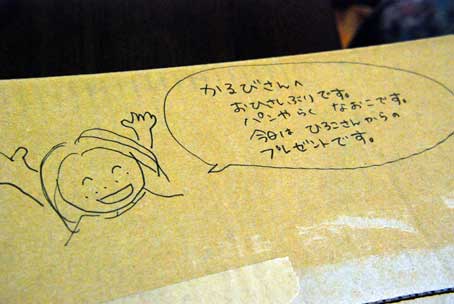 かるびさんへ
おひさしぶりです。
パンやらく なおこです。
今日は ひろこさんからの
プレゼントです。